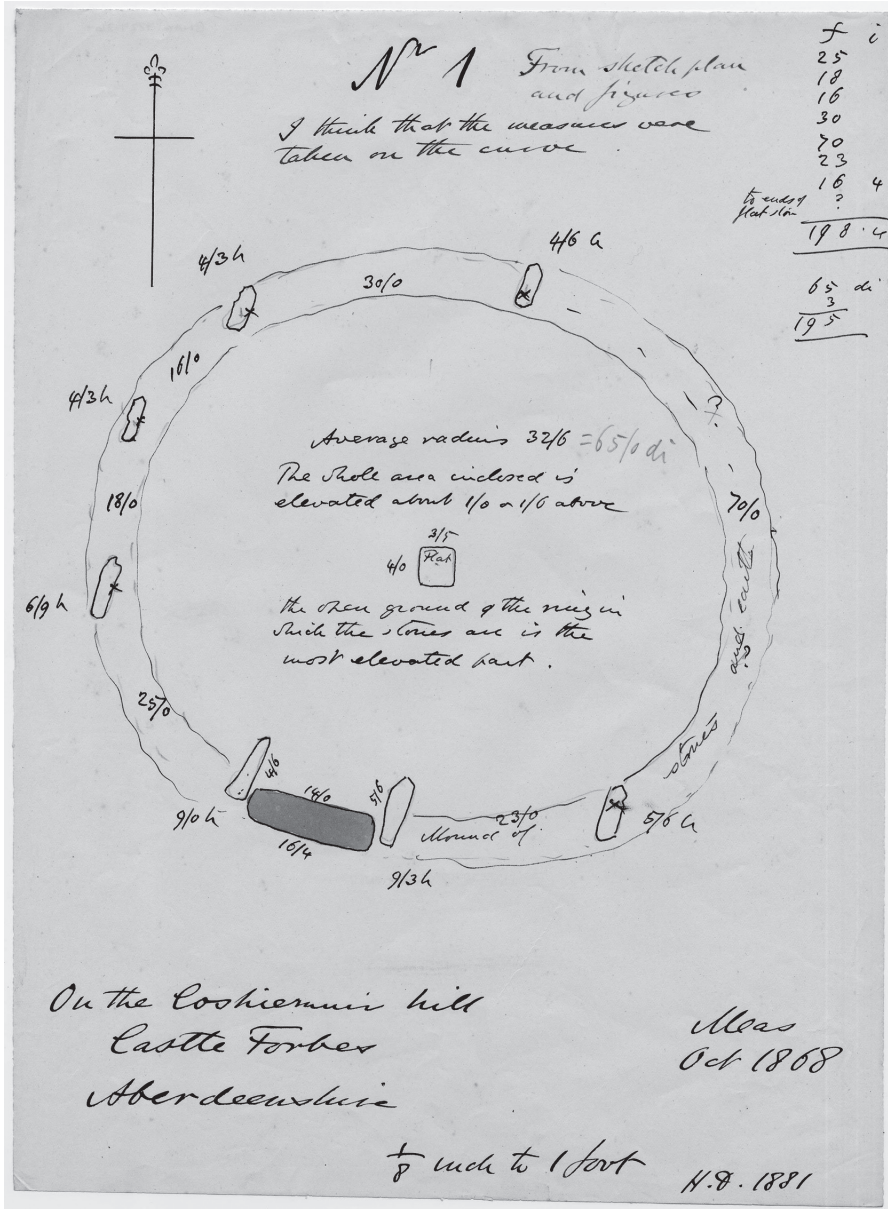 Nr 1
From sketch plan
and figures
I think that the measures were
taken on the curve.
f i
25
18
16
30
70
23
16 4
to ends of
flat stone
?
198.4
65 di
3
195
4/3 h
4/6 h
30/0
16/0
4/3 h
18/0
6/9 h
25/0
Average radius 32/6 = 65/0 di
The whole area inclosed is
elevated about 1/0 or 1/6 above
3/5
4/0
Flat
the open ground & the ring in
which the stones are is the
most elevated part.
70/0
4/6
14/0
5/6
16/4
9/0 h
9/3 h
23/0
5/6 h
Mound of
stones
and
earth
On the Coshiemuir hill
Castle Forbes
Aberdeenshire
Meas
Oct 1868
1/8 inch to 1 foot
H.D. 1881